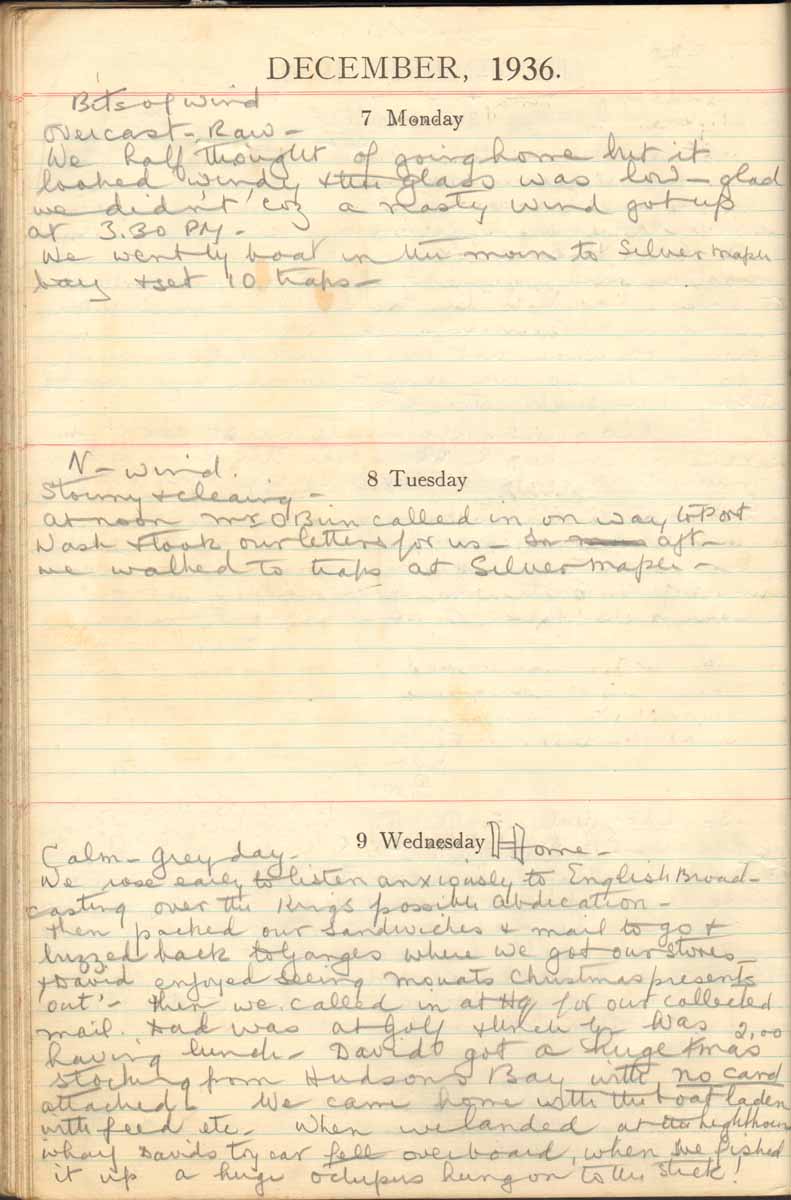 DECEMBER, 1936.
Bits of wind
7 Monday
Overcast - Raw -
We half thought of going home but it
looked windy & the glass was low - glad
we didn't, coz a nasty wind got up
at 3.30 PM -
We went by boat in the morn to Silver Maple
bay & set 10 traps -
N - wind.
8 Tuesday
Stormy & clearing -
at noon Mrs O called in on way to Port
Wash & took our letters for us - In aft -
we walked to traps at Silver Maple -
9 Wednesday Home -
Calm - Grey day -
We rose early to listen anxiously to English Broad-
casting over the Kings possible Abdication -
then packed our sandwiches & mail to go &
buzzed back to Ganges where we got our stores -
& David enjoyed seeing Mouats Christmas presents
'out' - then we called in at HQ for our collected
mail. Dad was at Golf & was
having lunch - David got a huge 2,00 Xmas
stocking from Hudsons Bay with no card
attached! We came home with the boat laden
with feed etc. When we landed at the lighthouse
wharf Davids toy car fell overboard, when we fished
it up a huge octupus hung on to the stick!